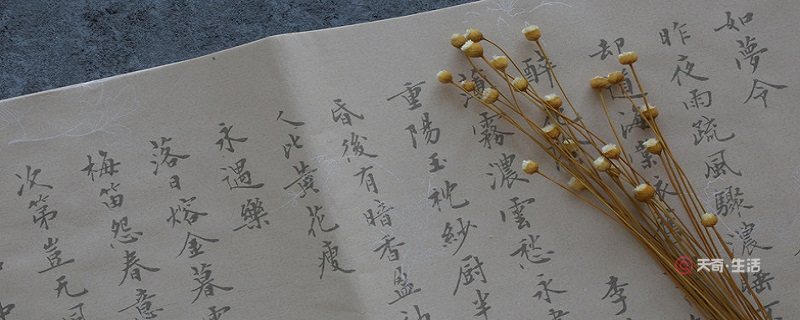 如夢令
昨夜雨疏風驟濃睡不
却道海棠依
醉花 李
薄霧濃雲愁永
重陽玉枕紗厨半
昏後有暗香盈
人比黄花瘦
永遇樂
落日熔金暮
梅笛怨春意
次第豈无風
天奇·生活